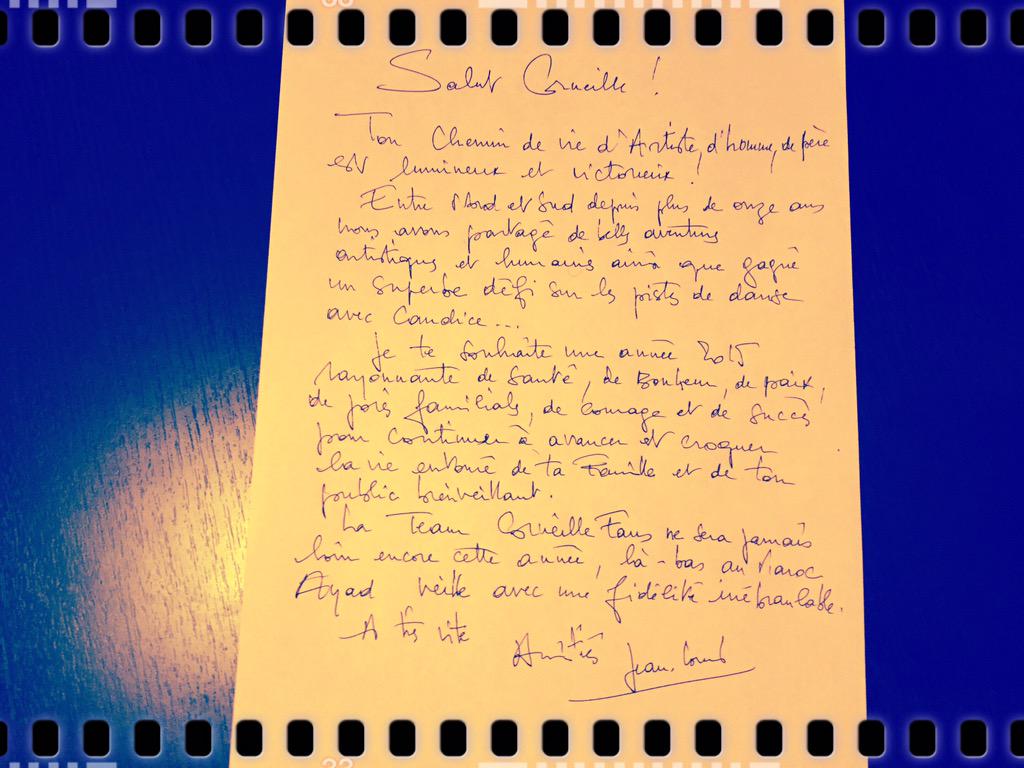 Salut Corneille !
Ton Chemin de vie d'Artiste, d'homme, de père
est lumineux et victorieux !
Entre Nord et Sud depuis plus de onze ans
nous avons partagé de belles aventures
artistiques et humaines ainsi que gagné
un superbe défi sur les pistes de danse
avec Candice...
Je te souhaite une année 2015
rayonnante de Santé, de Bonheur, de paix,
de joies familiales, de courage et de succès
pour continuer à avancer et croquer
la vie entouré de ta Famille et de ton
public bienveillant.
La Team Corneille Fans ne sera jamais
loin encore cette année, là-bas au Maroc
Ayad veille avec une fidélité inébranlable.
A très vite
Amitiés Jean.